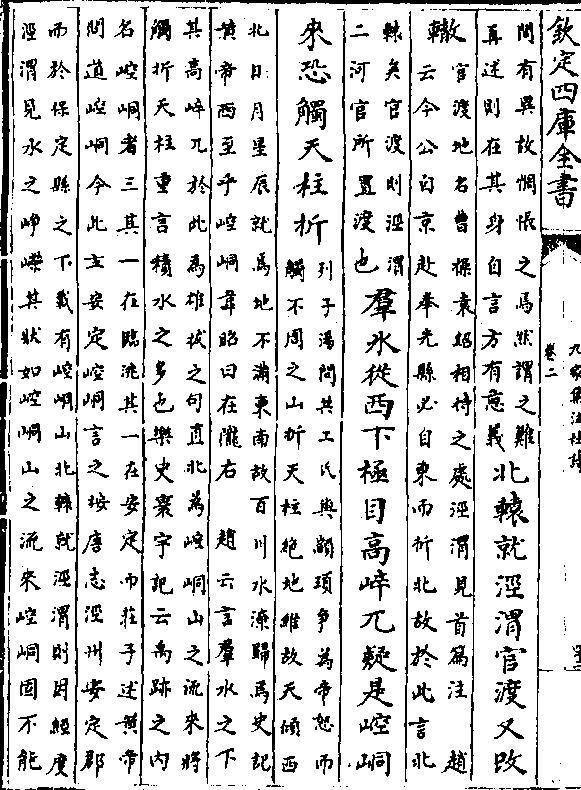 欽定四庫全書
九家集注杜詩
卷二
間有異故惆悵之焉然謂之難
真述則在其身自言方有意義
北轅就涇渭官渡又改
轍
官渡地名曹操袁紹相持之處涇渭見首篇注 趙
云今公自京赴奉先縣必自東而折北故於此言北
轅矣官渡則涇渭
二河官所置渡也
羣氷從西下極目高崒兀疑是崆峒
來恐觸天柱折
列子湯問共工氏與顓頊爭為帝怒而
觸不周之山折天柱絶地維故天傾西
北日月星辰就焉地不滿東南故百川水潦歸焉史記
黄帝西至乎崆峒韋昭曰在隴右 趙云言羣水之下
其高崒兀於此為雄拔之句直北為崆峒山之流來將
觸折天柱重言積水之多也樂史寰宇記云禹跡之内
名崆峒者三其一在臨洮其一在安定而莊子述黄帝
問道崆峒今此主安定崆峒言之按唐志涇州安定郡
而於保定縣之下載有崆峒山北轅就涇渭則因經度
涇渭見水之崢嶸其狀如崆峒山之流來崆峒固不能